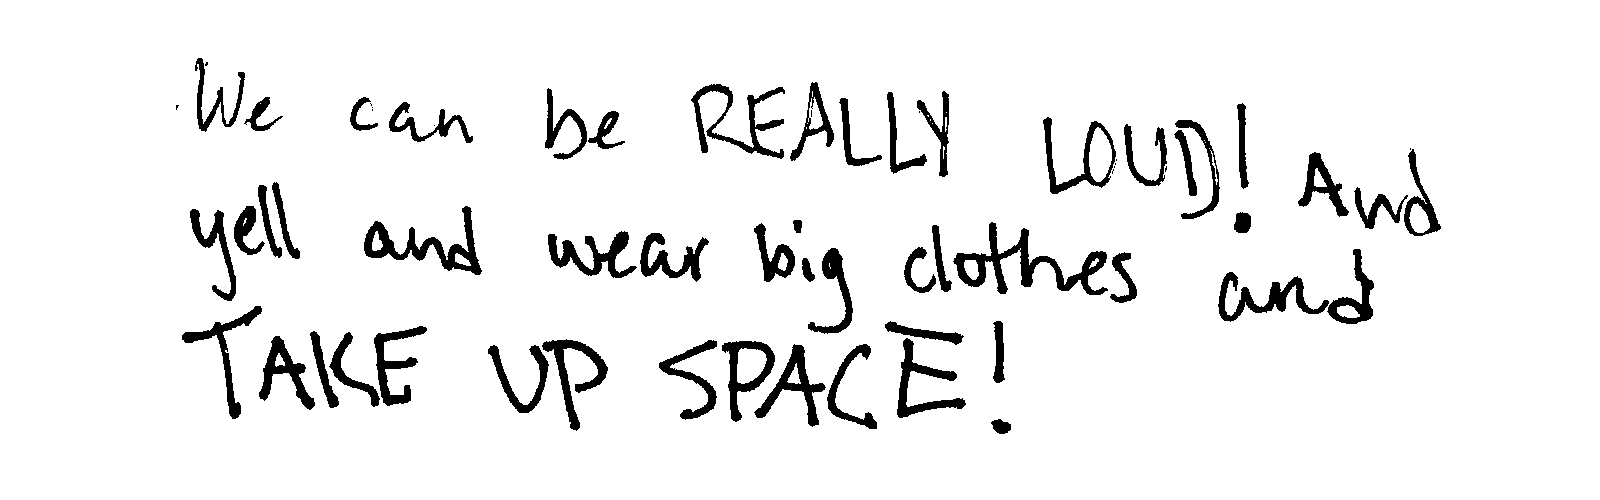 We can be REALLY LOUD! And
yell and wear big clothes and
TAKE UP SPACE!